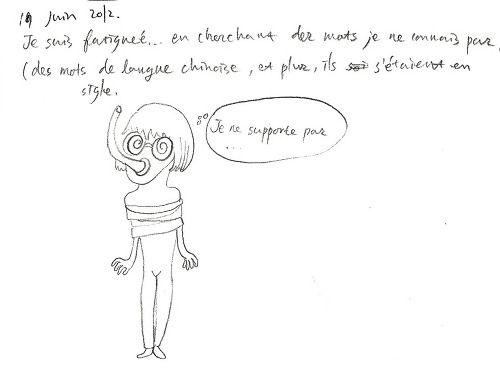 19 juin 2012.
Je suis fatigueé... en cherchant des mots je ne connais pas
(des mots de langue chinoise, et plus, ils s'étaient en
sigle.
Je ne supporte pas
...